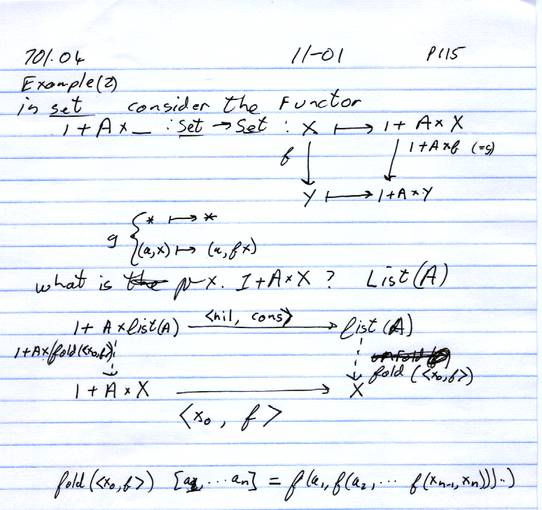 701.04 11-01 P115
Example(2)
in set consider the Functor
1 + A × _ : Set → Set : X ↦ 1 + A × X
f 1 + A × f (= g)
Y ↦ 1 + A × Y
g { * ↦ *
(a, x) ↦ (a, f x)
what is μ X. 1 + A × X ? List (A)
1 + A × List(A) <nil, cons> List (A)
1 + A × fold(<x₀, f>) fold (<x₀, f>)
1 + A × X X
<x₀ , f>
fold (<x₀, f>) [a₁, ... aₙ] = f(a₁, f(a₂, ... f(xₙ₋₁, xₙ))) ..)